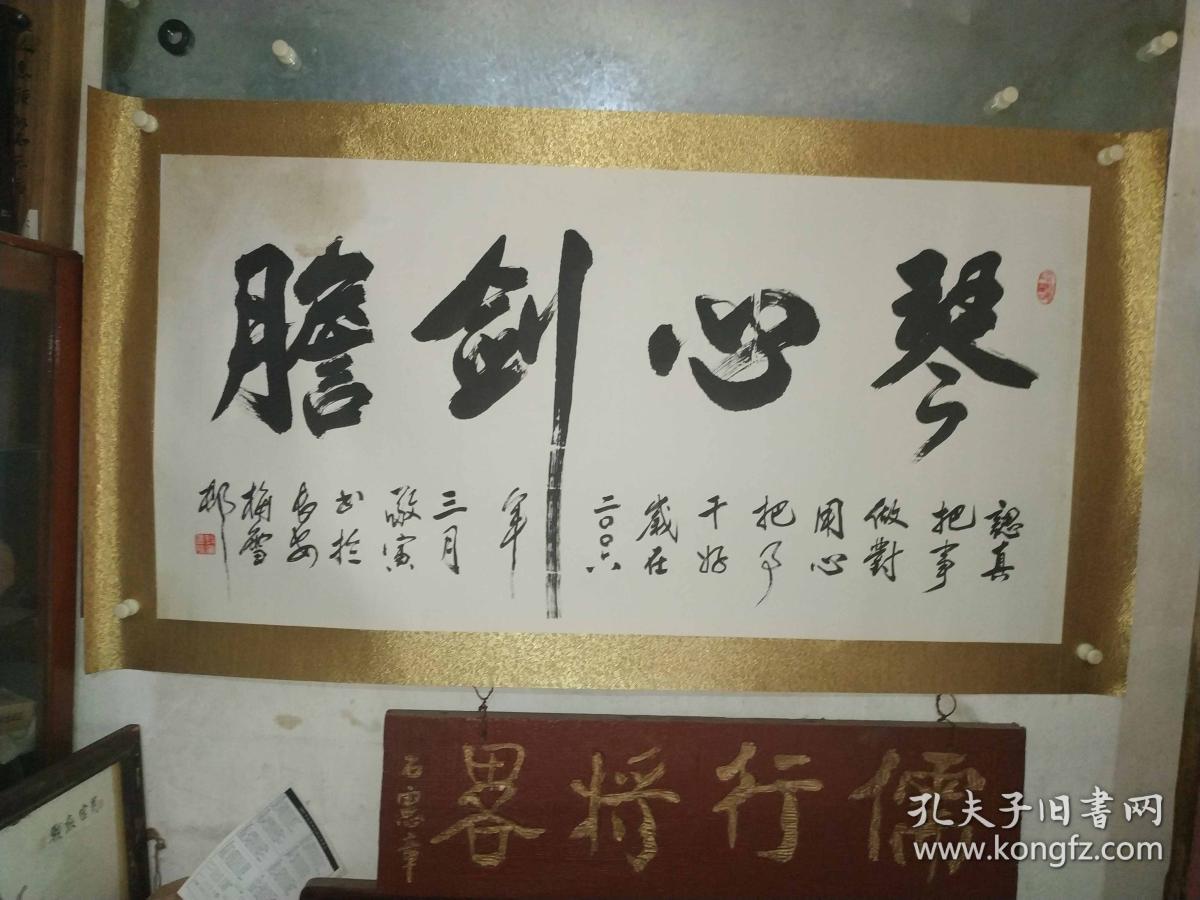 琴心剑膽
認真
把事
做對
用心
把事
干好
歲在
二〇〇六
年
三月
敬寅
书於
長安
梅雪
邨
儒行将畧
石寓章
孔夫子旧书网
www.kongfz.com